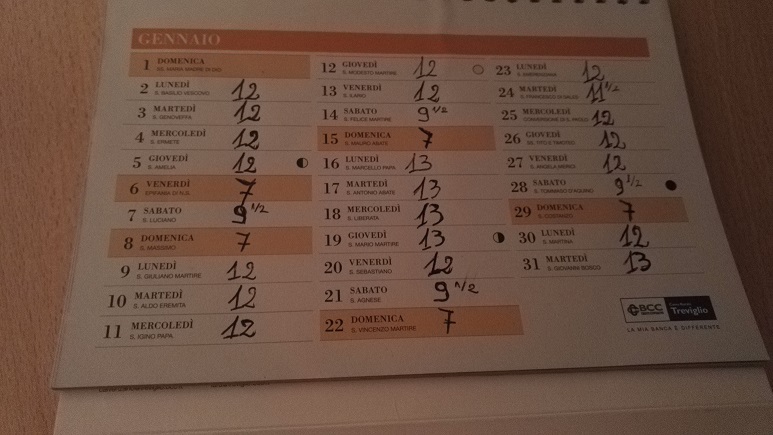 GENNAIO
1 DOMENICA
SS. MARIA MADRE DI DIO
2 LUNEDÌ 12
S. BASILIO VESCOVO
3 MARTEDÌ 12
S. GENOVEFFA
4 MERCOLEDÌ 12
S. ERMETE
5 GIOVEDÌ 12
S. AMELIA
6 VENERDÌ 7
EPIFANIA DI N.S.
7 SABATO 9 1/2
S. LUCIANO
8 DOMENICA 7
S. MASSIMO
9 LUNEDÌ 12
S. GIULIANO MARTIRE
10 MARTEDÌ 12
S. ALDO EREMITA
11 MERCOLEDÌ 12
S. IGINO PAPA
12 GIOVEDÌ 12
S. MODESTO MARTIRE
13 VENERDÌ 12
S. ILARIO
14 SABATO 9 1/2
S. FELICE MARTIRE
15 DOMENICA 7
S. MAURO ABATE
16 LUNEDÌ 13
S. MARCELLO PAPA
17 MARTEDÌ 13
S. ANTONIO ABATE
18 MERCOLEDÌ 13
S. LIBERATA
19 GIOVEDÌ 13
S. MARIO MARTIRE
20 VENERDÌ 12
S. SEBASTIANO
21 SABATO 9 1/2
S. AGNESE
22 DOMENICA 7
S. VINCENZO MARTIRE
23 LUNEDÌ 12
S. EMERENZIANA
24 MARTEDÌ 11 1/2
S. FRANCESCO DI SALES
25 MERCOLEDÌ 12
CONVERSIONE DI S. PAOLO
26 GIOVEDÌ 12
SS. TITO E TIMOTEO
27 VENERDÌ 12
S. ANGELA MERICI
28 SABATO 9 1/2
S. TOMMASO D'AQUINO
29 DOMENICA 7
S. COSTANZO
30 LUNEDÌ 12
S. MARTINA
31 MARTEDÌ 13
S. GIOVANNI BOSCO
BCC
Treviglio
LA MIA BANCA È DIFFERENTE